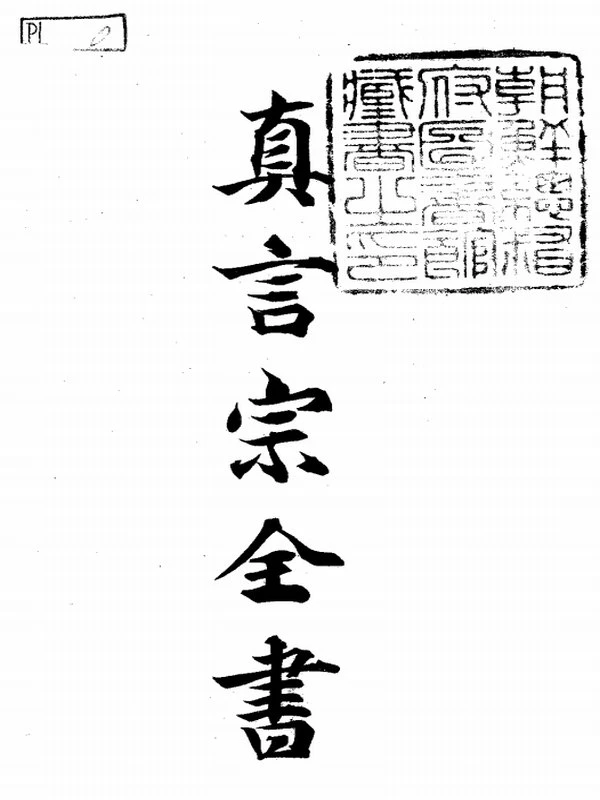 真言宗全書
朝鮮總督
府圖書館
藏書之印